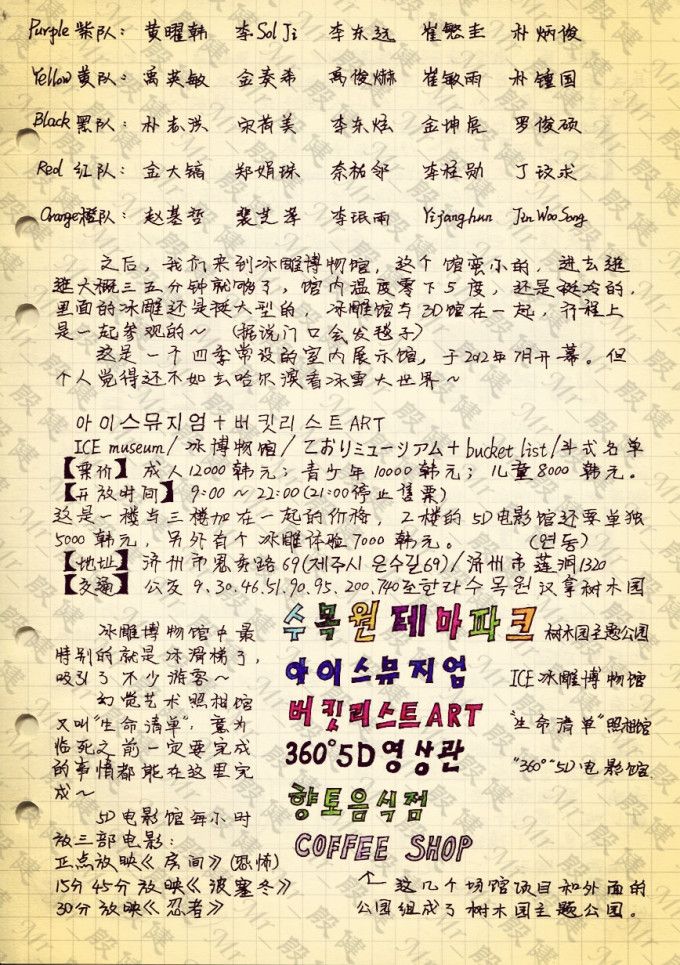 Purple 紫队: 黄曜韩 李Sol Ji 李东远 崔繁圭 朴炳俊
Yellow 黄队: 禹英敏 金奏希 高俊赫 崔敏雨 朴锺国
Black 黑队: 朴志洪 宋荷美 李东炫 金坤虎 罗俊硕
Red 红队: 金大镐 郑娟珠 奈祐邻 李柱勋 丁议求
Orange橙队: 赵基哲 裴芝萍 李珉雨 Yijanghun Jin Woo Song
之后,我们来到冰雕博物馆,这个馆蛮小的,进去逛
逛大概三五分钟就够了,馆内温度零下5度,还是挺冷的,
里面的冰雕还是挺大型的,冰雕馆与3D馆在一起,行程上
是一起参观的~ (据说门口会发毯子)
这是一个四季常设的室内展示馆,于2012年7月开幕。但
个人觉得还不如去哈尔滨看冰雪大世界~
아이스뮤지엄+버킷리스트ART
ICE museum/冰博物馆/こおりミュージアム+bucket list/斗式名单
【票价】成人12000韩元;青少年10000韩元;儿童8000韩元。
【开放时间】9:00~22:00(21:00停止售票)
这是一楼与三楼加在一起的价格,2楼的5D电影馆还要单独
5000韩元,另外有个冰雕体验7000韩元。 (연동)
【地址】济州市恩秀路69(제주시 은수길69)/济州市莲洞1320
【交通】公交9.30.46.51.90.95.200.740至한라수목원汉拿树木园
冰雕博物馆中最
特别的就是冰滑梯了,
吸引了不少游客~
幻觉艺术照相馆
又叫"生命清单",意为
临死之前一定要完成
的事情都能在这里完
成~
5D电影馆每小时
放三部电影:
正点放映《房间》(恐怖)
15分45分放映《波塞冬》
30分放映《忍者》
수목원테마파크 树木园主题公园
아이스뮤지엄 ICE冰雕博物馆
버킷리스트ART "生命清单"照相馆
360°5D영상관 "360°"5D电影馆
향토음식점
COFFEE SHOP
↑ 这几个场馆项目和外面的
公园组成了树木园主题公园。